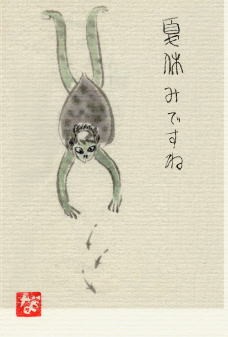 夏休みですね